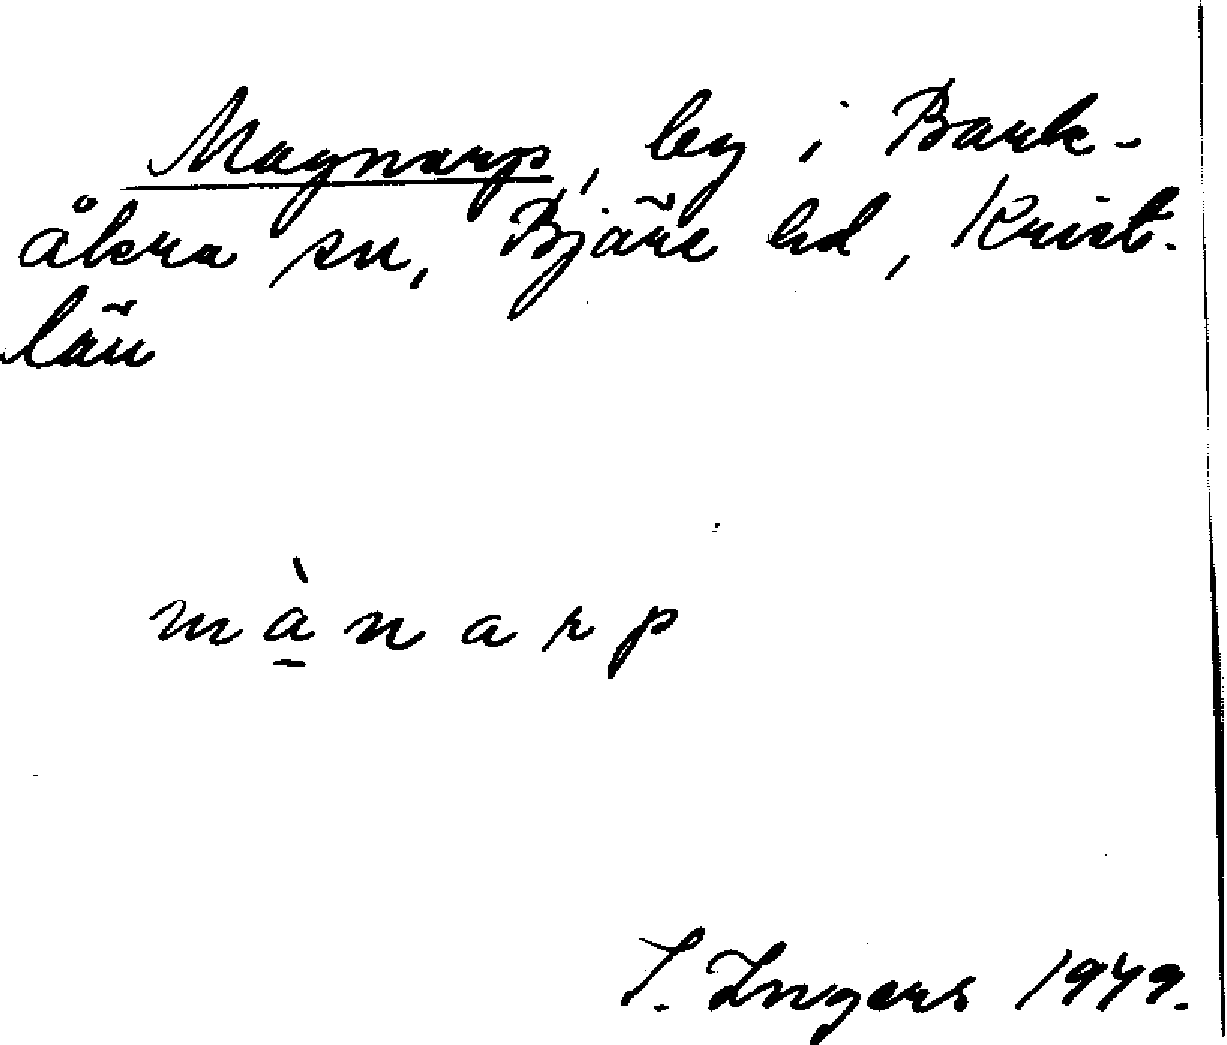 Magnarp, by i Bark-
åkra sn, Bjäre hd, Krist.
län
mà̱narp
I. Ingers 1949.